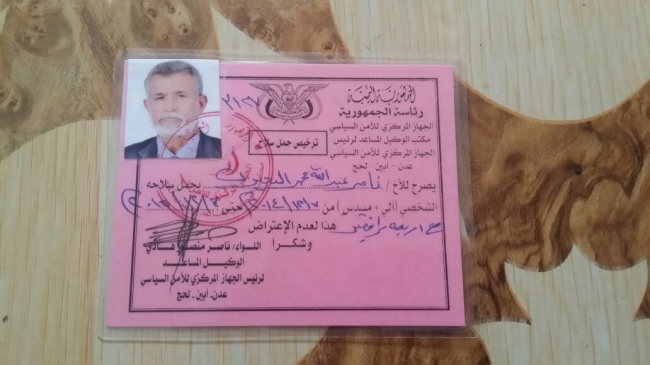 الجمهورية اليمنية
رئاسة الجمهورية
الجهاز المركزي للأمن السياسي
مكتب الوكيل المساعد لرئيس
الجهاز المركزي للأمن السياسي
عدن - أبين - لحج
ترخيص حمل سلاح
يصرح للأخ / ناصر عبدالله محمد بحمل سلاحه
الشخصي (آلي + مسدس) من حتى
مع أربعة مرافقين هذا لعدم الإعتراض
وشكرا
اللواء/ ناصر منصور هادي
الوكيل المساعد
لرئيس الجهاز المركزي للأمن السياسي
عدن - أبين - لحج